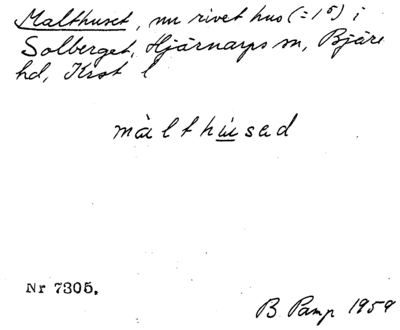 Malthuset, nu rivet hus (=1⁵) i
Solberget, Hjärnarps sn, Bjäre
hd, Krst l
màlthúsad
Nr 7305.
B Pamp 1959